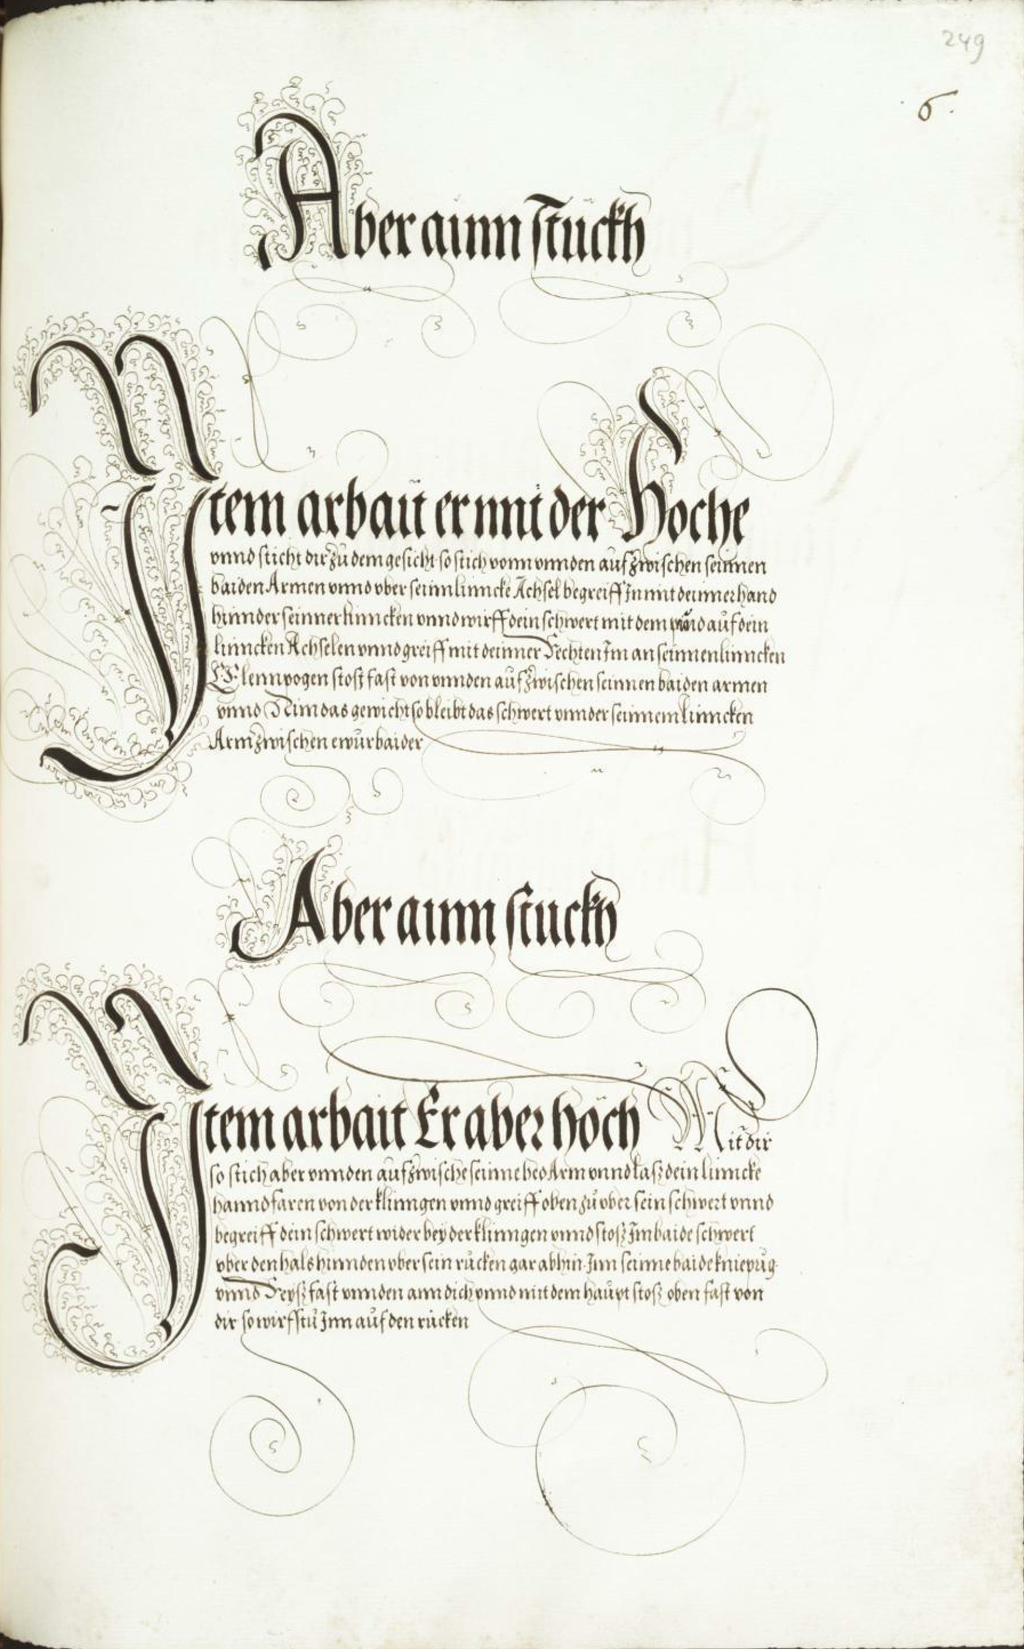 249
6.
Aber ainn stückh
Item arbait er mit der Höche
vnnd sticht dir zu dem gesicht so stich vonn vnnden auf zwischen seinnen
baiden Armen vnnd vber seinn linncke Achsel begreiff In mit deinner hand
hinnder seinner linncken vnnd wirff dein schwert mit dem auf dein
linncken Achselen vnnd greiff mit deinner Rechten Im an seinnen linncken
Elennpogen stost fast von vnnden auf zwischen seinnen baiden armen
vnnd Nim das gewicht so bleibt das schwert vnnder seinnem linncken
Arm zwischen ewür baider
Aber ainn stuckh
Item arbait Er aber hoch Mit dir
so stich aber vnnden auf zwische seinne bed Arm vnnd lasz dein linncke
hannd faren von der klinngen vnnd greiff oben zu vber sein schwert vnnd
begreiff dein schwert wider bey der klinngen vnnd stosz Im baide schwert
vber den hals hinnden vber sein rücken gar abhin Inn seinne baide kniepüg
vnnd Reysz fast vnnden ann dich vnnd mit dem haupt stosz oben fast von
dir so wirfstu Inn auf den rücken